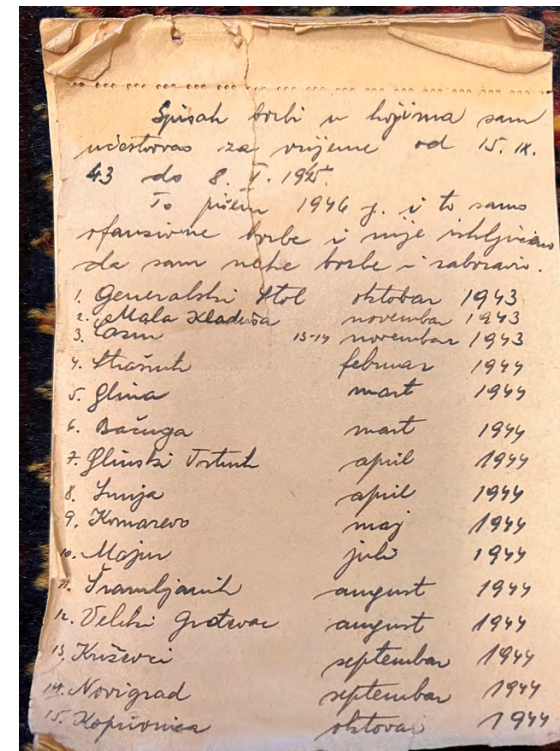 Spisak borbi u kojima sam
učestvovao za vrijeme od 15. IX.
43 do 8. V. 1945.
To pišem 1946 g. i to samo
ofanzivne borbe i nije isključeno
da sam neke borbe i zaboravio.
1. Generalski Stol oktobar 1943
2. Mala Kladuša novembar 1943
3. Cazin 13-14 novembar 1943
4. Strašnik februar 1944
5. Glina mart 1944
6. Bačuga mart 1944
7. Glinski Trtnik april 1944
8. Sunja april 1944
9. Komarevo maj 1944
10. Majur juli 1944
11. august 1944
12. Veliki Grđevac august 1944
13. Križevci septembar 1944
14. Novigrad septembar 1944
15. Koprivnica oktobar 1944